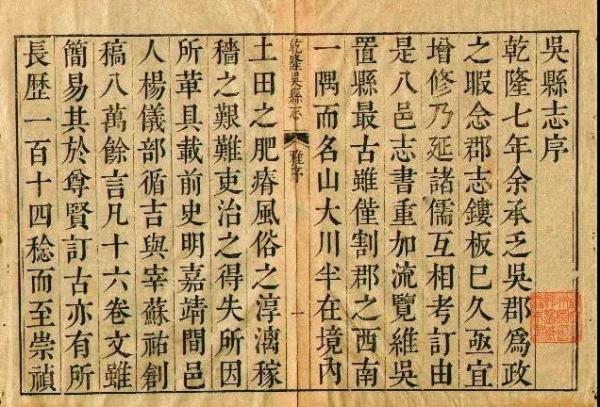 吳縣志序
乾隆七年余承乏吳郡爲政
之暇念郡志鏤板已久亟宜
增修乃延諸儒互相考訂由
是八邑志書重加流覽維吳
置縣最古雖僅割郡之西南
一隅而名山大川半在境內
乾隆吳縣志
雅序
一
土田之肥瘠風俗之淳漓稼
穡之艱難吏治之得失所因
所革具載前史明嘉靖間邑
人楊儀部循吉與宰蘇祐創
稿八萬餘言凡十六卷文雖
簡易其於尊賢訂古亦有所
長歴一百十四稔而至崇禎